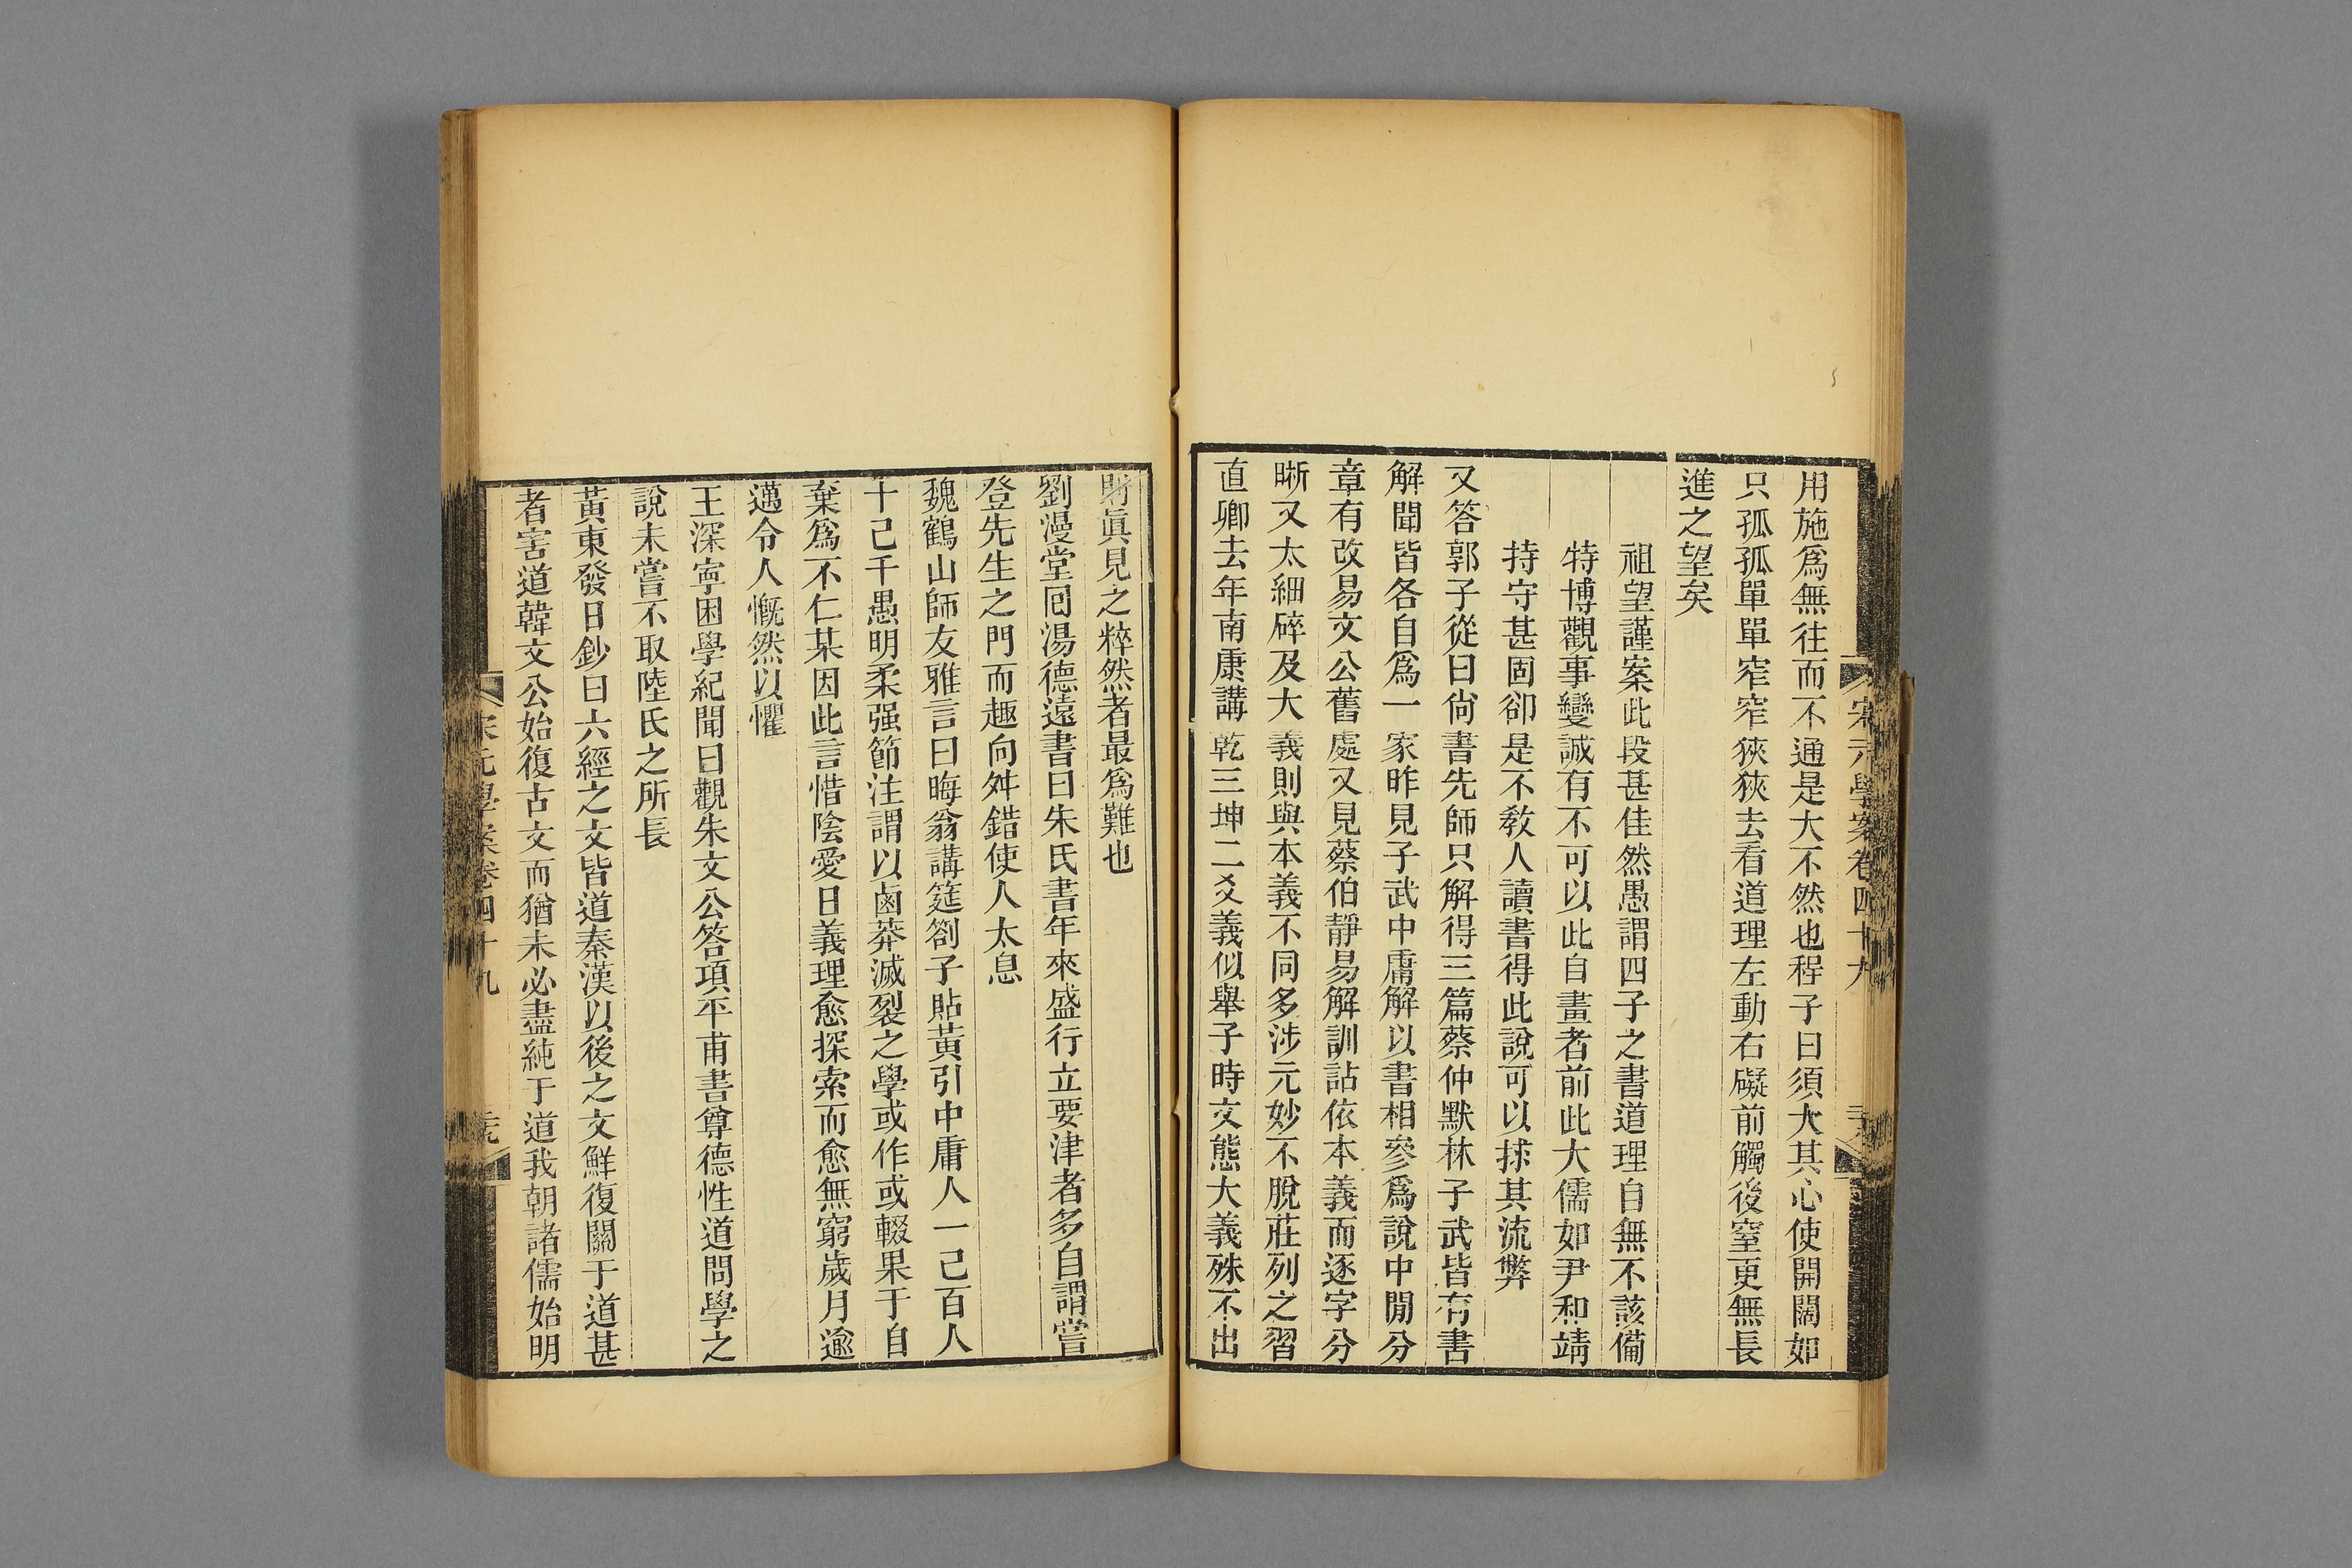 用施爲無往而不通是大不然也程子曰須大其心使開闊如
只孤孤單單窄窄狹狹去看道理左動右礙前觸後窒更無長
進之望矣
祖望謹案此段甚佳然愚謂四子之書道理自無不該備
特博觀事變誠有不可以此自畫者前此大儒如尹和靖
持守甚固卻是不敎人讀書得此說可以捄其流弊
又答郭子從曰尙書先師只解得三篇蔡仲默林子武皆有書
解聞皆各自爲一家昨見子武中庸解以書相參爲說中閒分
章有改易文公舊處又見蔡伯靜易解訓詁依本義而逐字分
晰又太細碎及大義則與本義不同多涉元妙不脫莊列之習
直卿去年南康講乾三坤二爻義似舉子時文態大義殊不出
財眞見之粹然者最爲難也
劉漫堂回湯德遠書曰朱氏書年來盛行立要津者多自謂嘗
登先生之門而趣向舛錯使人太息
魏鶴山師友雅言曰晦翁講筵劄子貼黃引中庸人一己百人
十己千愚明柔强節注謂以鹵莽滅裂之學或作或輟果于自
棄爲不仁某因此言惜陰愛日義理愈探索而愈無窮歲月逾
邁令人慨然以懼
王深寧困學紀聞曰觀朱文公答項平甫書尊德性道問學之
說未嘗不取陸氏之所長
黃東發日鈔曰六經之文皆道秦漢以後之文鮮復關于道甚
者害道韓文公始復古文而猶未必盡純于道我朝諸儒始明
宋元學案卷四十九